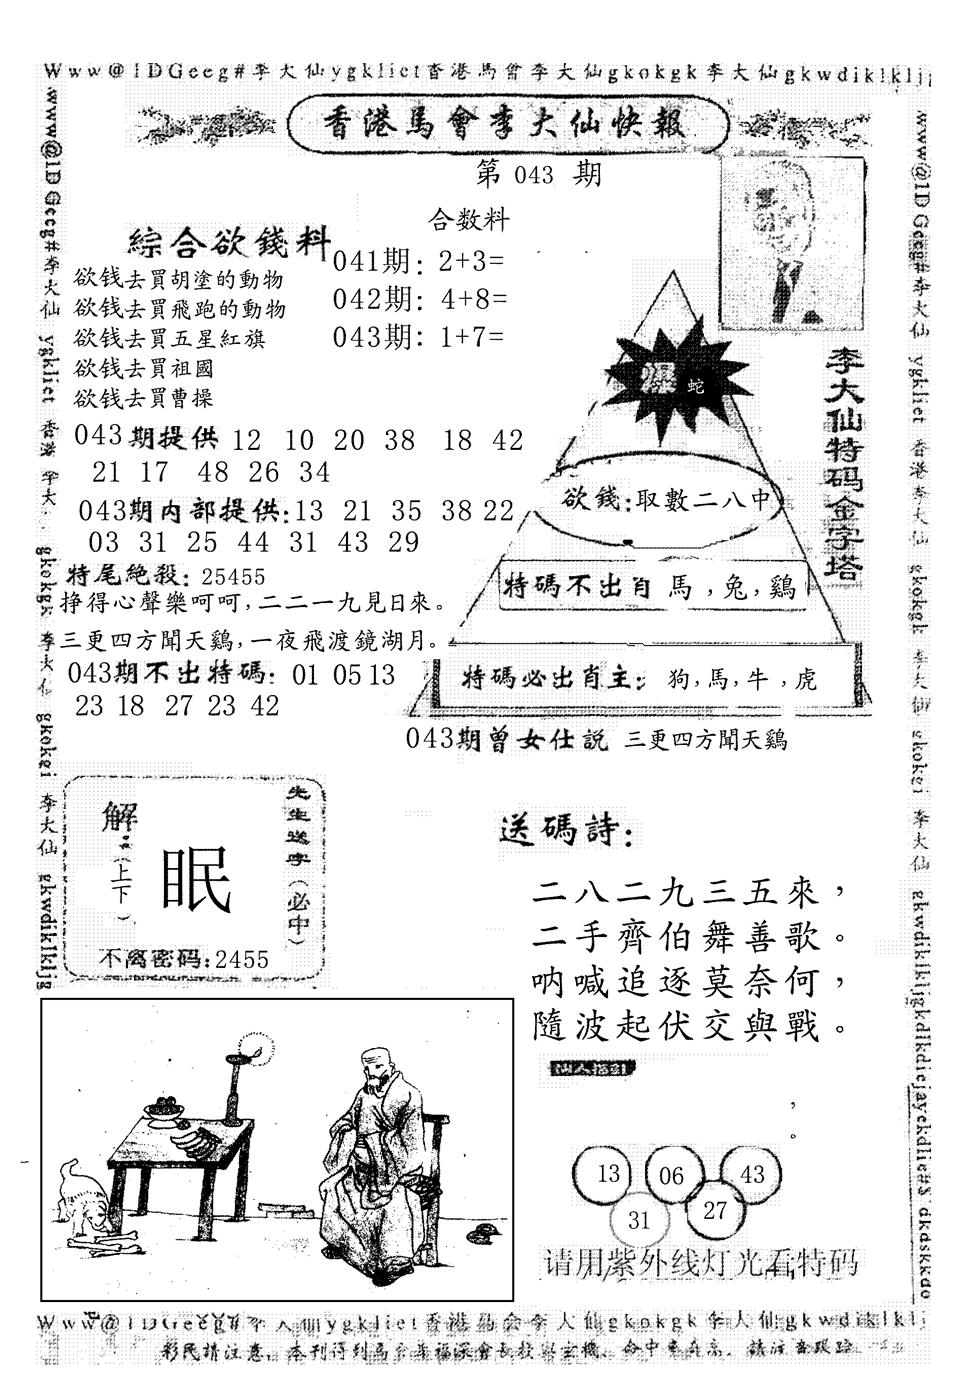 Www@1DGeeg#李大仙ygklict香港馬會李大仙gkokgk李大仙gkwdiklklj
香港馬會李大仙快報
第 043 期
合数料
綜合欲錢料
041期: 2+3=
042期: 4+8=
043期: 1+7=
欲钱去買胡塗的動物
欲钱去買飛跑的動物
欲钱去買五星紅旗
欲钱去買祖國
欲钱去買曹操
043期提供 12 10 20 38 18 42
21 17 48 26 34
043期内部提供:13 21 35 38 22
03 31 25 44 31 43 29
特尾絶殺: 25455
挣得心聲樂呵呵,二二一九見日來。
三更四方聞天鷄,一夜飛渡鏡湖月。
043期不出特碼: 01 05 13
23 18 27 23 42
李大仙特码金字塔
爆 蛇
欲錢:取數二八中
特碼不出肖 馬,兔,鷄
特碼必出肖主: 狗,馬,牛,虎
043期曾女仕説 三更四方聞天鷄
解
(上下)
眠
先生送字(必中)
不离密码:2455
送碼詩:
二八二九三五來,
二手齊伯舞善歌。
呐喊追逐莫奈何,
隨波起伏交與戰。
仙人指引
,
。
13 06 43
31 27
请用紫外线灯光看特码
Www@1DGeeg#李大仙ygklict香港馬会李大仙gkokgk李大仙gkwdiklklj
www@1DGeeg#李大仙 ygklict 香港 李大 gkokgk 李大仙 gkokei 李大仙 gkwdiklkljg
www@1DGeeg#李大仙 ygklict 香港李大仙 gkokgk 李大仙 gkokei 李大仙 gkwdiklkljgkdikdiejayekdlie#$ dkdskkdo